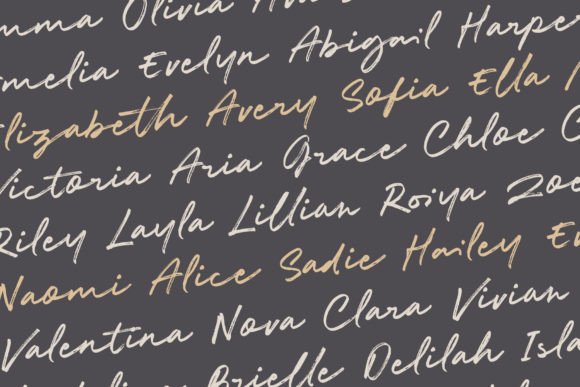 Olivia
Evelyn Abigail Harpe
Elizabeth Avery Sofia Ella
Victoria Aria Grace Chloe
Riley Layla Lillian Roiya Zoe
Naomi Alice Sadie Hailey
Valentina Nova Clara Vivian
Brielle Delilah Isla